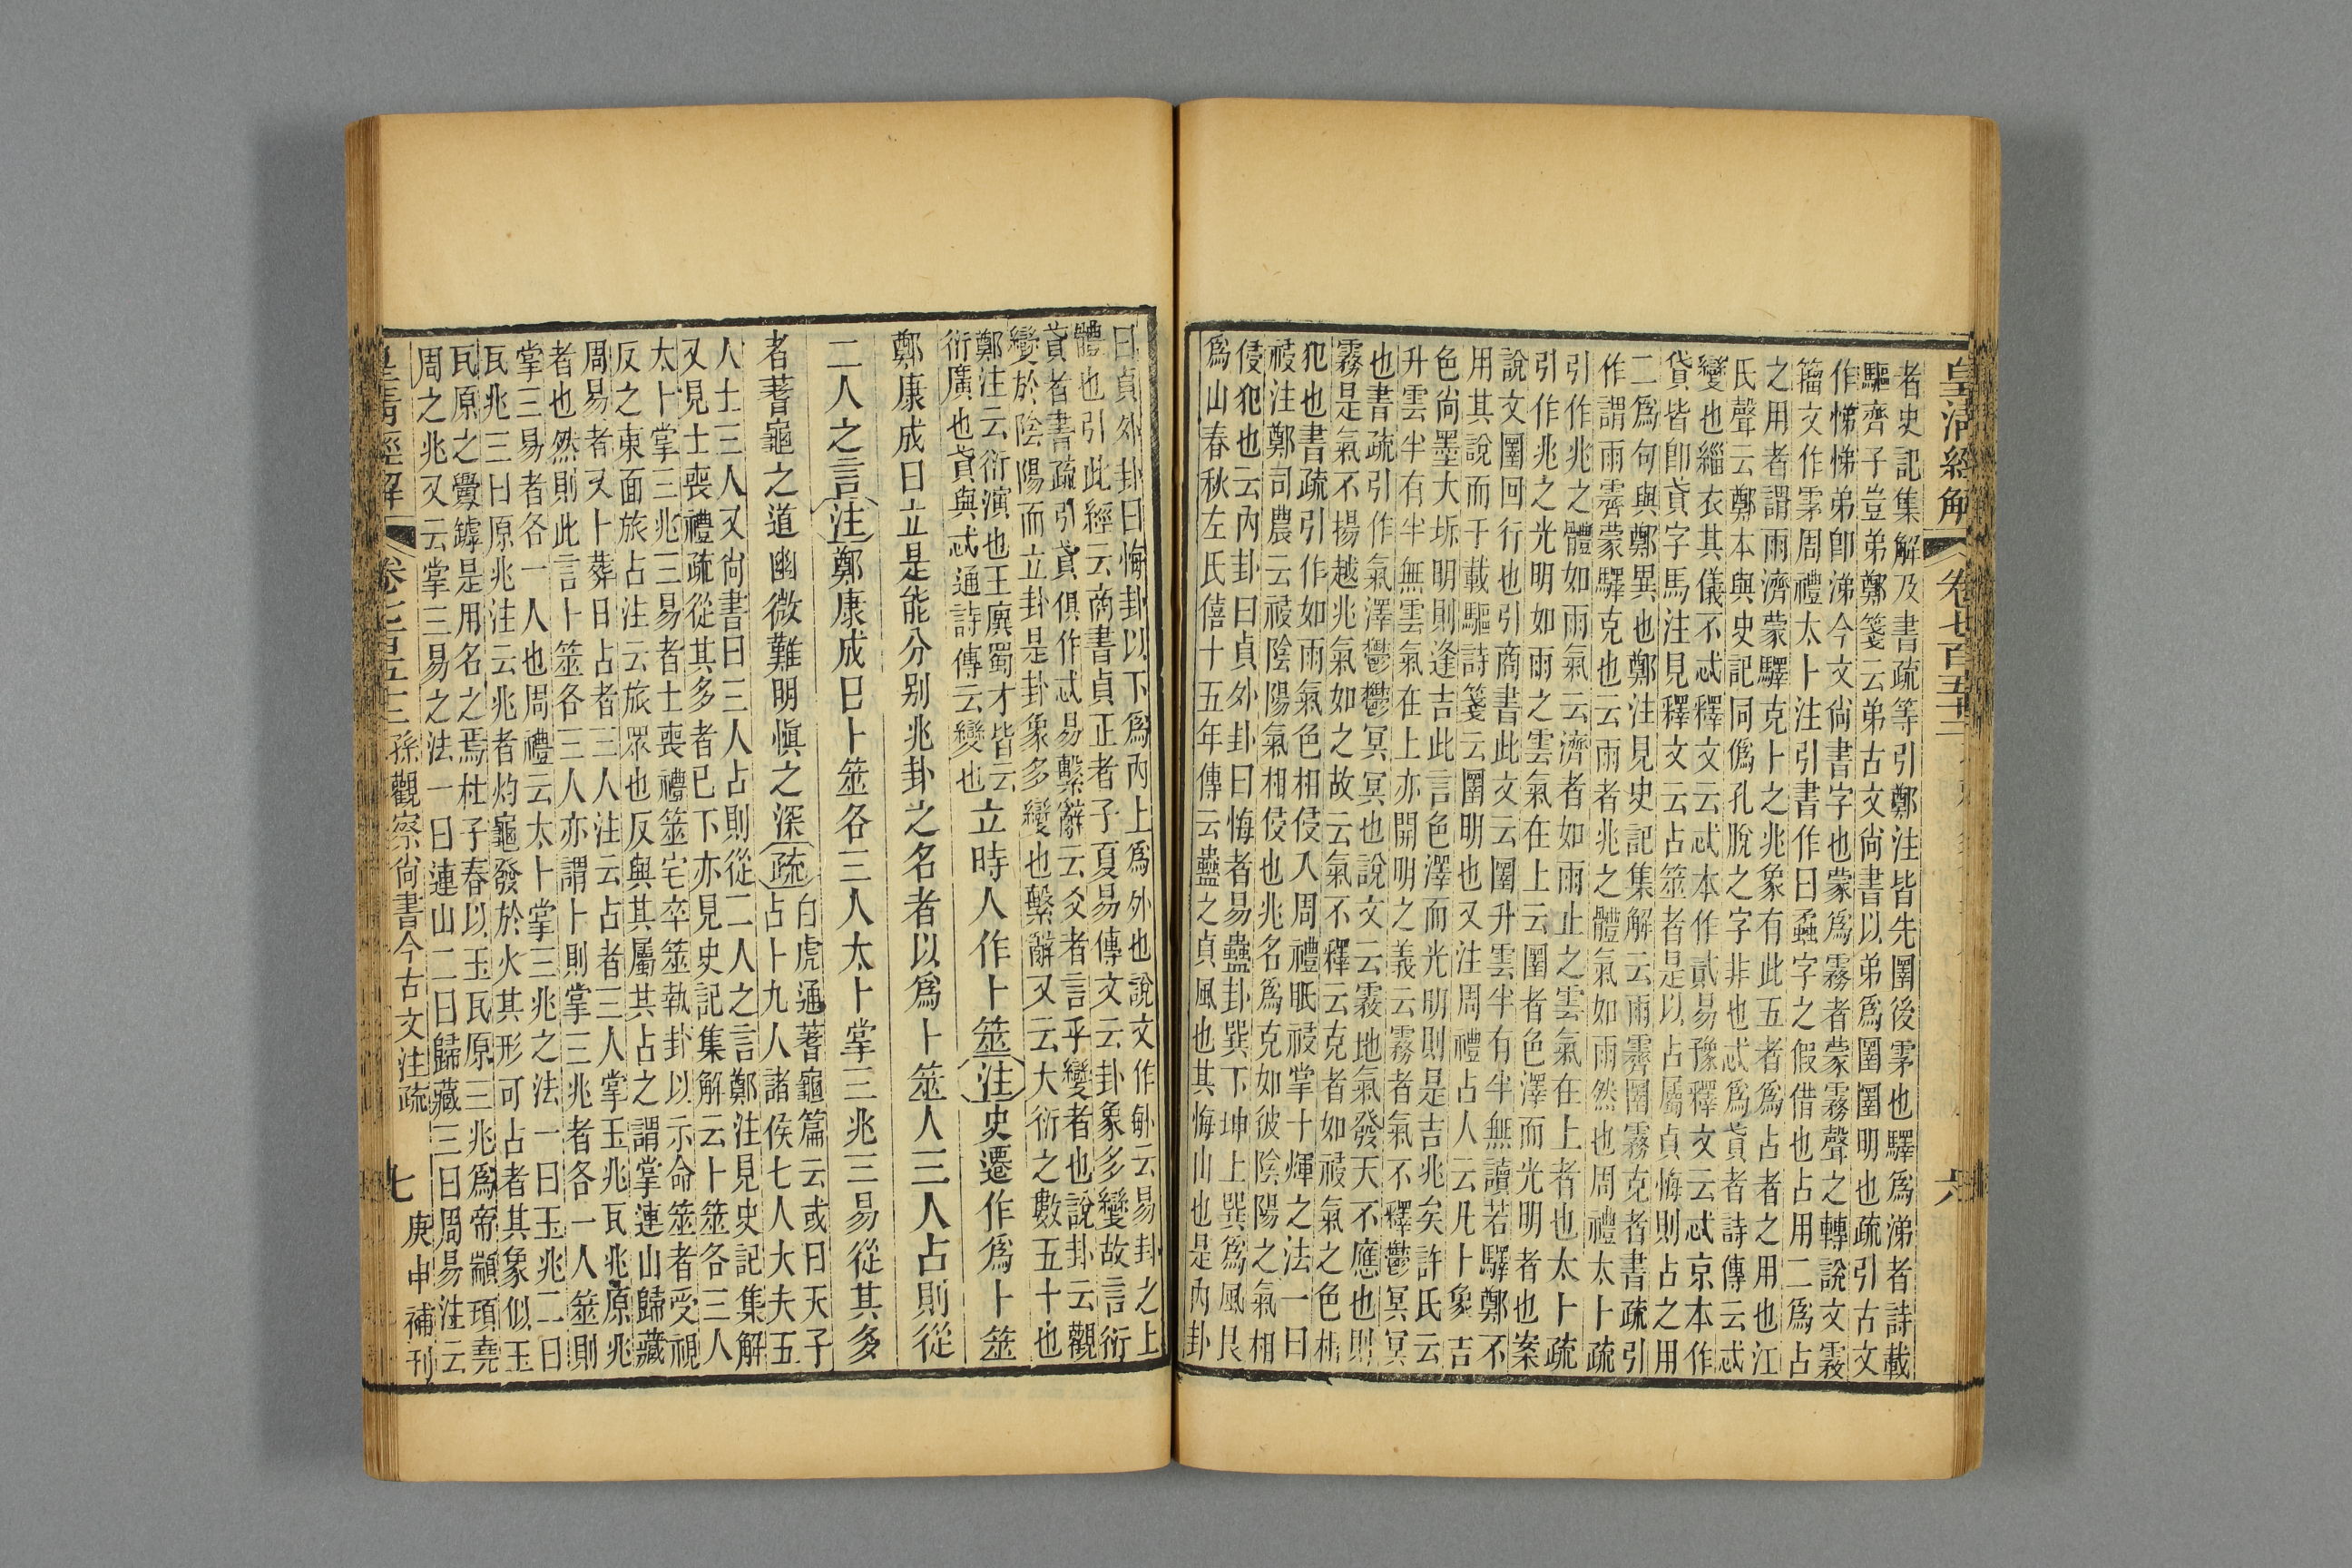 皇清經解 卷七百五十三
六
者史記集解及書疏等引鄭注皆先圛後雺也驛爲涕者詩載
驅齊子豈弟鄭箋云弟古文尚書以弟爲圛圛明也疏引古文
作悌悌弟卽涕今文尚書字也蒙爲霧者蒙霧聲之轉說文霧
籀文作雺周禮太卜注引書作曰蟊字之假借也占用二爲占
之用者謂雨濟蒙驛克卜之兆象有此五者爲占者之用也江
氏聲云鄭本與史記同僞孔脫之字非也忒爲貣者詩傳云忒
變也緇衣其儀不忒釋文云忒本作貳易豫釋文云忒京本作
貸皆卽貣字馬注見釋文云占筮者是以占屬貞悔則占之用
二爲句與鄭異也鄭注見史記集解云雨霽圛霧克者書疏引
作謂雨霽蒙驛克也云雨者兆之體氣如雨然也周禮太卜疏
引作兆之體如雨氣云濟者如雨止之雲氣在上者也太卜疏
引作兆之光明如雨之雲氣在上云圛者色澤而光明者也案
說文圛回行也引商書此文云圛升雲半有半無讀若驛鄭不
用其說而于載驅詩箋云圛明也又注周禮占人云凡卜象吉
色尚墨大坼明則逢吉此言色澤而光明則是吉兆矣許氏云
升雲半有半無雲氣在上亦開明之義云霧者氣不釋鬱冥冥
也書疏引作氣澤鬱鬱冥冥也說文云霧地氣發天不應也則
霧是氣不揚越兆氣如之故云氣不釋云克者如祲氣之色相
犯也書疏引作如雨氣色相侵入周禮眡祲掌十煇之法一曰
祲注鄭司農云祲陰陽氣相侵也兆名爲克如彼陰陽之氣相
侵犯也云內卦曰貞外卦曰悔者易蠱卦巽下坤上巽爲風艮
爲山春秋左氏僖十五年傳云蠱之貞風也其悔山也是內卦
曰貞外卦曰悔卦以下爲內上爲外也說文作𠧩云易卦之上
體也引此經云商書貞正者子夏易傳文云卦象多變故言衍
貣者書疏引貣俱作忒易繫辭云爻者言乎變者也說卦云觀
變於陰陽而立卦是卦象多變也繫辭又云大衍之數五十也
鄭注云衍演也王廙蜀才皆云
衍廣也貣與忒通詩傳云變也
立時人作卜筮注史遷作爲卜筮
鄭康成曰立是能分别兆卦之名者以爲卜筮人三人占則從
二人之言注鄭康成曰卜筮各三人太卜掌三兆三易從其多
者蓍龜之道幽微難明愼之深疏白虎通蓍龜篇云或曰天子
占卜九人諸侯七人大夫五
人士三人又尚書曰三人占則從二人之言鄭注見史記集解
又見士喪禮疏從其多者已下亦見史記集解云卜筮各三人
太卜掌三兆三易者士喪禮筮宅卒筮執卦以示命筮者受視
反之東面旅占注云旅眾也反與其屬共占之謂掌連山歸藏
周易者又卜葬日占者三人注云占者三人掌玉兆瓦兆原兆
者也然則此言卜筮各三人亦謂卜則掌三兆者各一人筮則
掌三易者各一人也周禮云太卜掌三兆之法一曰玉兆二曰
瓦兆三曰原兆注云兆者灼龜發於火其形可占者其象似玉
瓦原之璺罅是用名之焉杜子春以玉瓦原三兆爲帝顓頊堯
周之兆又云掌三易之法一曰連山二曰歸藏三曰周易注云
皇清經解 卷七百五十三 孫觀察尚書今古文注疏
七 庚申補刊